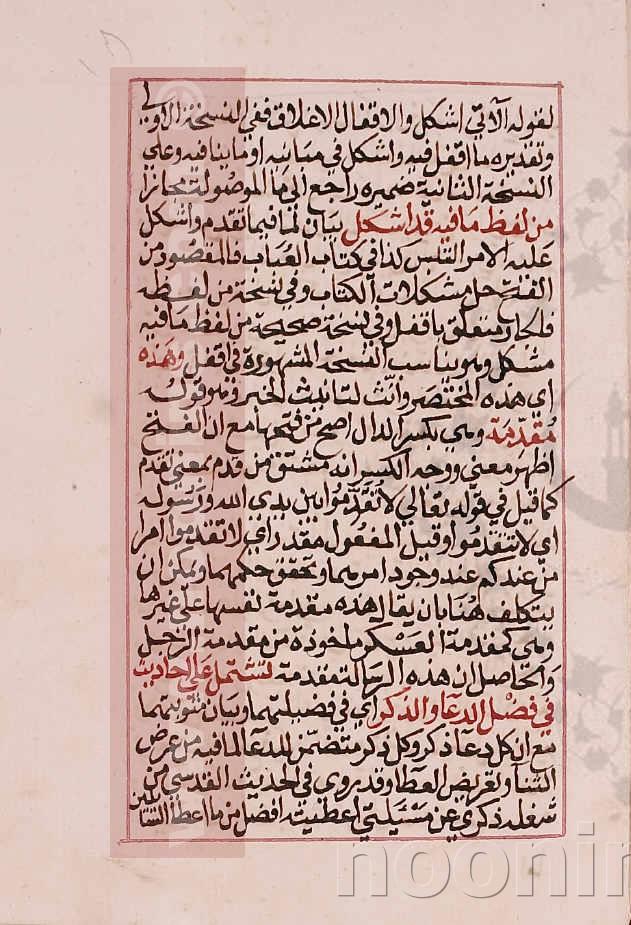 لقوله الآتي اشكل والاقفال الاغلاق ففي النسخة الاولى
وتقديره ما اقفل فيه واشكل في مبانيه او معانيه وعلى
النسخة الثانية ضميره راجع الى ما الموصولة مجازا
من لفظ ما فيه قد اشكل بيان لما فيما تقدم واشكل
عليه الامر التبس كذا في كتاب العباب فالمقصود من
الفتح حل مشكلات الكتاب وفي نسخة من لفظه
فالجار متعلق باقفل وفي نسخة صحيحة من لفظ ما فيه
مشكل وهو يناسب النسخة المشهورة في اقفل وهذه
اي هذه المختصر وأنّث لتانيث الخبر وهو قوله
مُقدِّمة وهي بكسر الدال اصح من فتحها مع ان الفتح
اظهر معنى ووجه الكسر انه مشتق من قدم بمعنى تقدم
كما قيل في قوله تعالى لا تُقَدِّمُوا بين يدي الله ورسوله
اي لا تتقدموا وقيل المفعول مقدر اي لا تقدموا امرا
من عندكم عند وجود امرهما وتحقق حكمهما ويمكن ان
يتكلف هنا بان يقال هذه مقدمة لنفسها على غيرها
وهي كمقدمة العسكر ماخوذة من مقدمة الرحل
والحاصل ان هذه الرسالة مقدمة تشتمل على احاديث
في فضل الدعا والذكر اي في فضيلتهما وبيان مثوبتهما
مع ان كل دعآ ذكر وكل ذكر متضمن للدعا لما فيه من عرض
الثنآ وتعريض العطا وقد يروى في الحديث القدسي من
شغله ذكري عن مسئلتي اعطيته افضل من ما اعطا السائلين
noonin